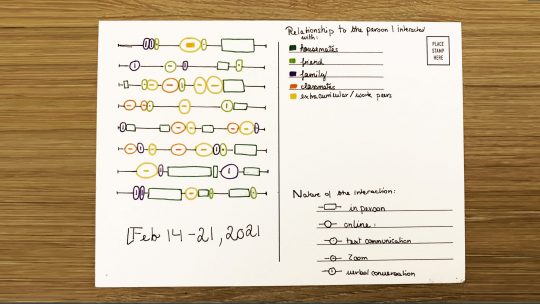 Relationship to the person I interacted
with:
housemates
friend
family
classmates
extracurricular/work peers
PLACE
STAMP
HERE
Nature of the interaction:
in person
online:
text communication
Zoom
verbal conversation
Feb 14-21, 2021